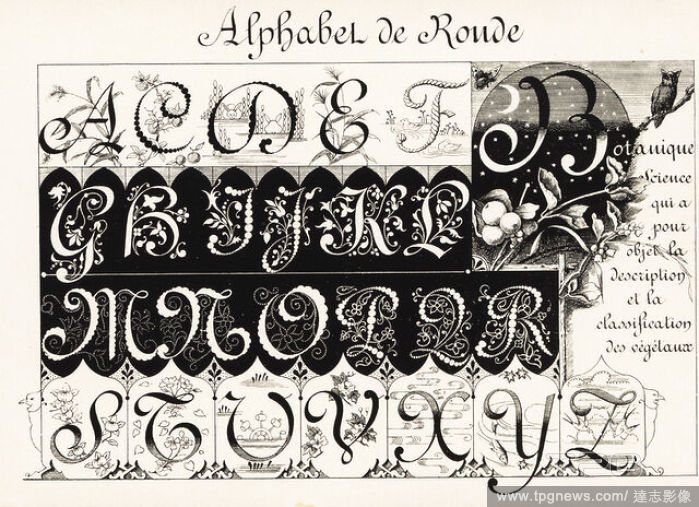 Alphabet de Ronde
A C D E F
Botanique
Science
qui a
pour
objet la
description
et la
classification
des végétaux
G H I J K L
M N O P Q R
S T U V X Y Z
www.tpgnews.com/ 達志影像